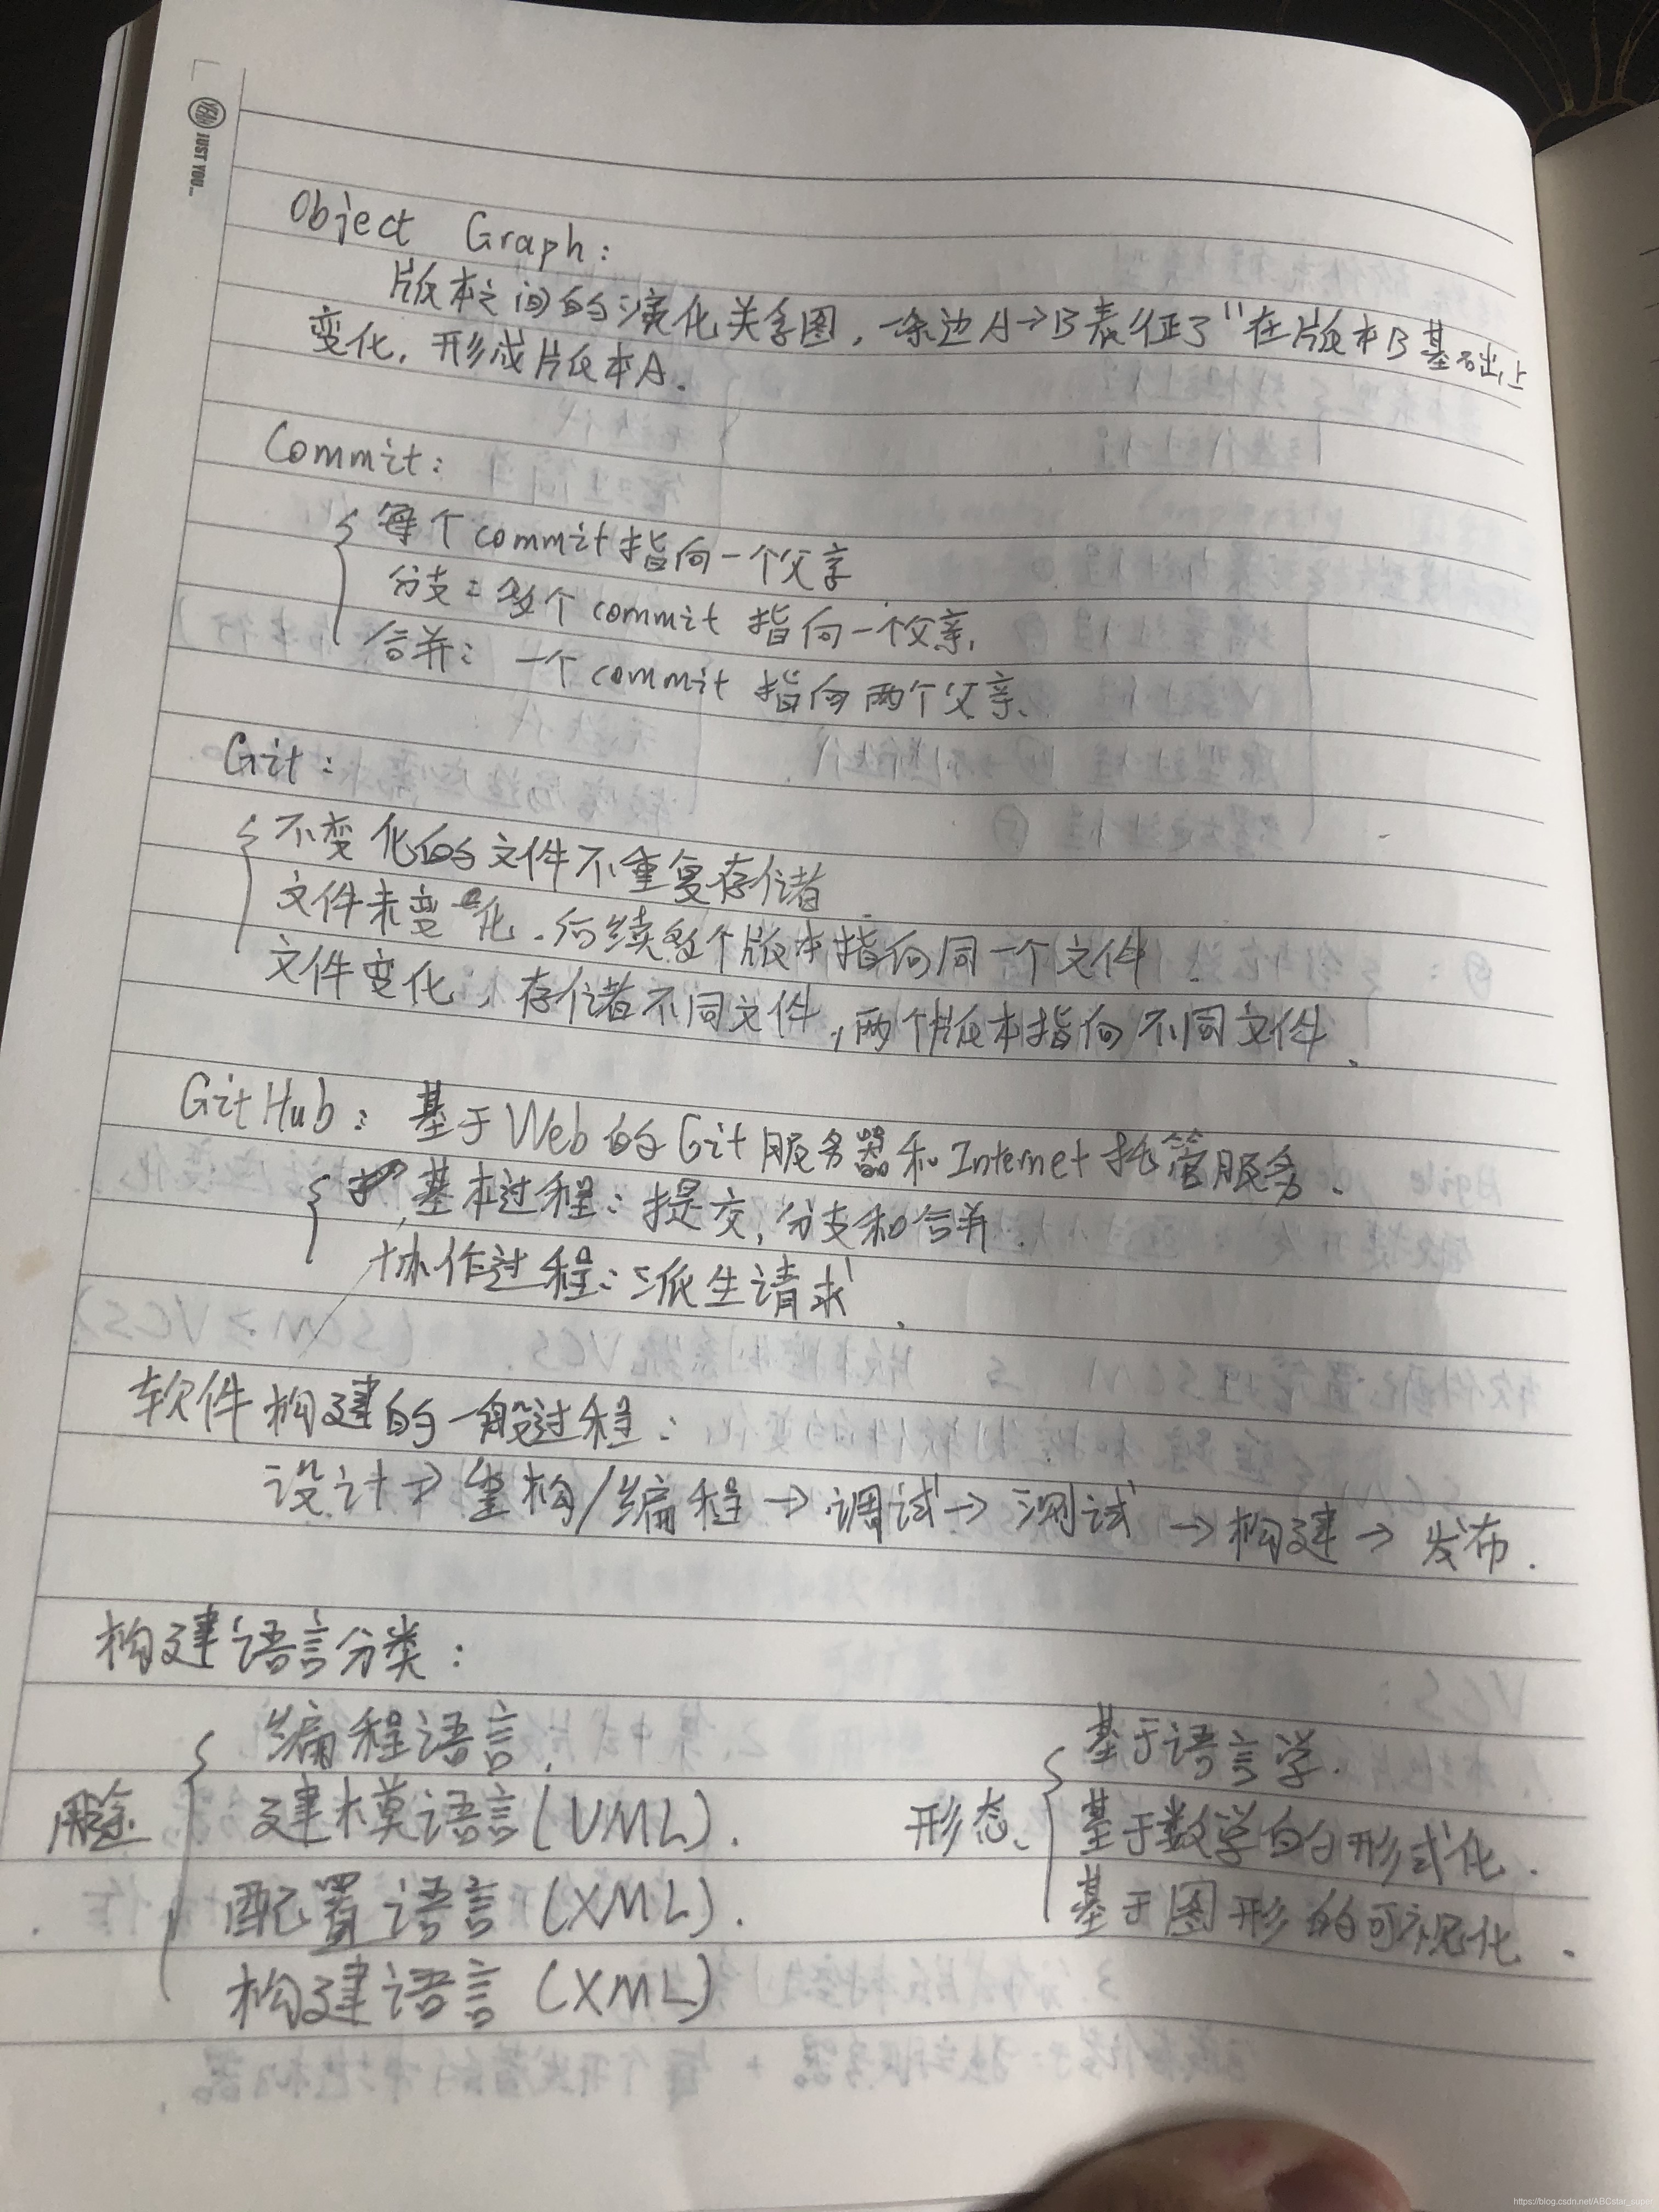 YEAH JUST YOU...
Object Graph:
版本之间的演化关系图,一条边A→B表征了"在版本B基础上
变化,形成版本A.
Commit:
每个commit指向一个父亲
分支:多个commit 指向一个父亲.
合并: 一个commit 指向两个父亲.
Git:
不变化的文件不重复存储
文件未变化.后续多个版本指向同一个文件.
文件变化,存储不同文件,两个版本指向不同文件.
GitHub: 基于Web的Git服务器和Internet托管服务.
基本过程:提交,分支和合并.
协作过程:派生请求.
软件构建的一般过程:
设计→重构/编程→调试→测试→构建→发布.
构建语言分类:
用途 编程语言. 形态 基于语言学.
建模语言(UML). 基于数学的形式化.
配置语言(XML). 基于图形的可视化.
构建语言(XML)
https://blog.csdn.net/ABCstar_super